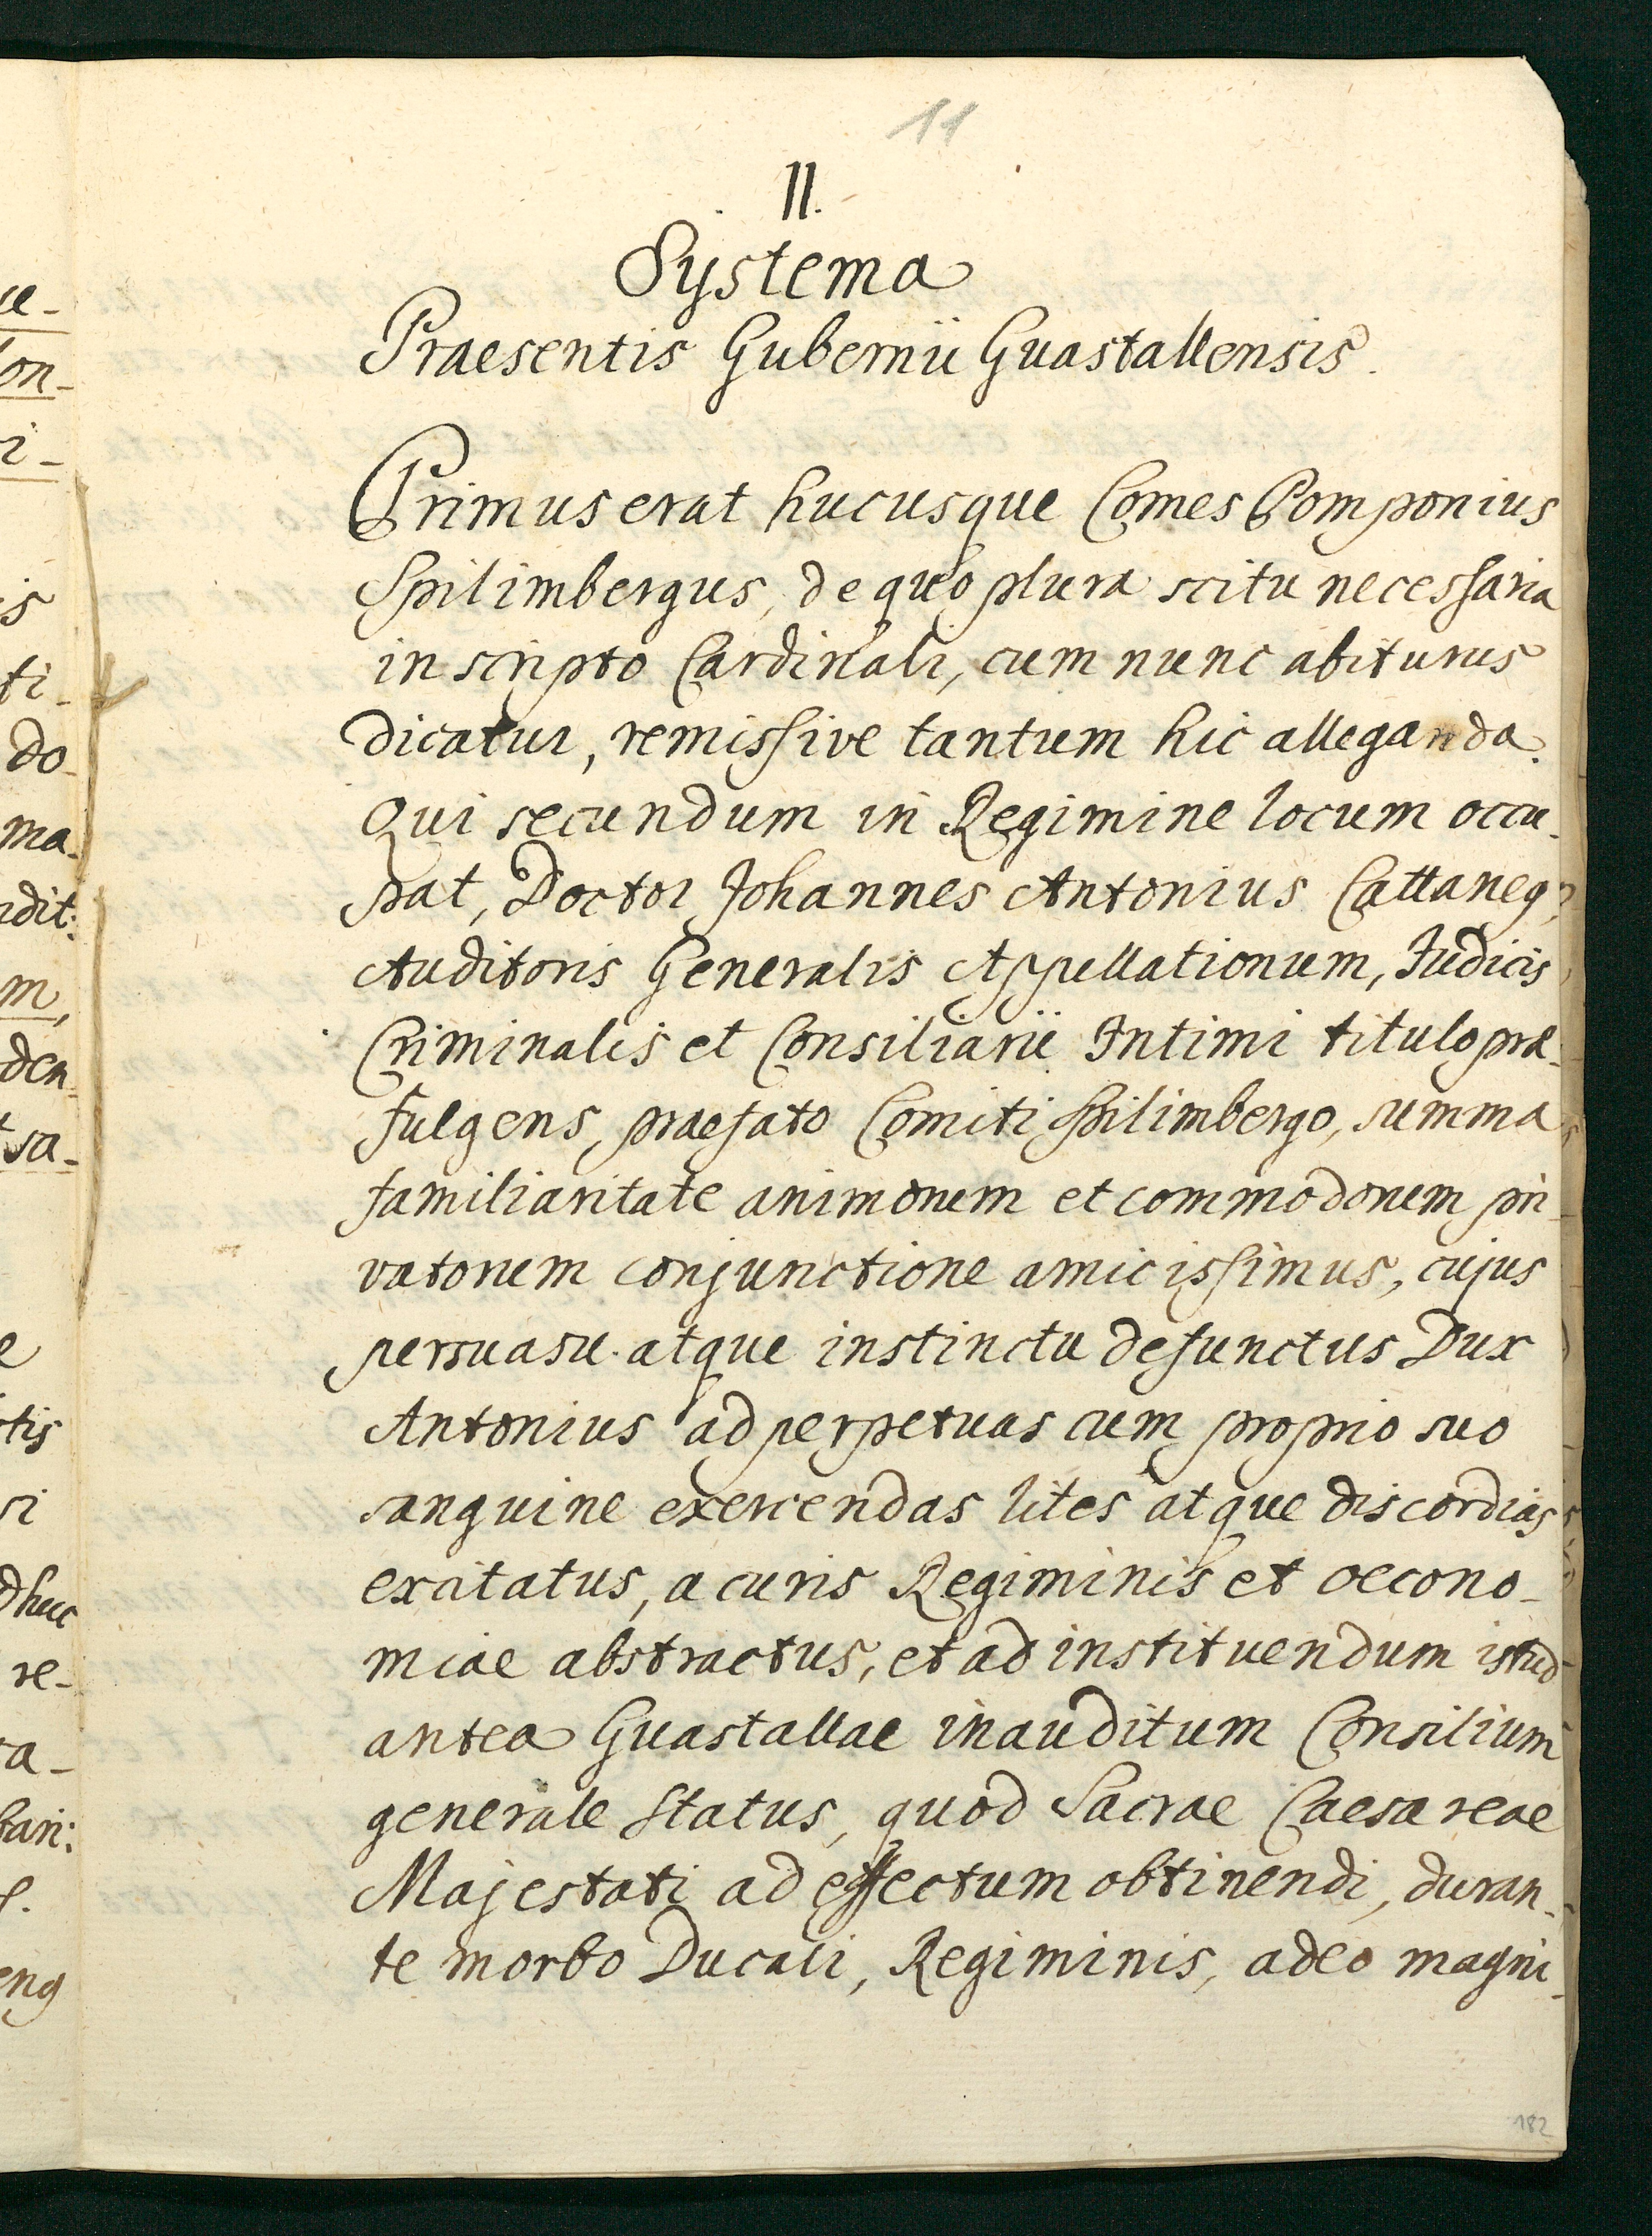 11
II.
Systema
Praesentis Gubernii Guastallensis.
Primus erat hucusque Comes Pomponius
Spilimbergus, de quo plura scitu necessaria
in scripto Cardinali, cum nunc abiturus
dicatur, remissive tantum hic alleganda.
Qui secundum in Regimine locum occu-
pat, Doctor Johannes Antonius Cattaneq,
Auditoris Generalis Appellationum, Judicis
Criminalis et Consiliarii Intimi titulo præ-
fulgens, praefato Comiti Spilimbergo, summa
familiaritate animorum et commodorum pri-
vatorum conjunctione amicissimus, cujus
persuasu atque instinctu defunctus Dux
Antonius ad perpetuas cum proprio suo
sanguine exercendas lites atque discordias
excitatus, a curis Regiminis et oecono-
miae abstractus, et ad instituendum istud
antea Guastallae inauditum Consilium
generale Status, quod Sacrae Caesareae
Majestati ad effectum obtinendi, duran-
te morbo Ducali, Regiminis, adeo magni-
182
ue-
on-
i-
is
ti-
do-
ma-
udit:
m,
den-
sa-
e
tis
si
dhuc
re-
ra-
bari:
eng